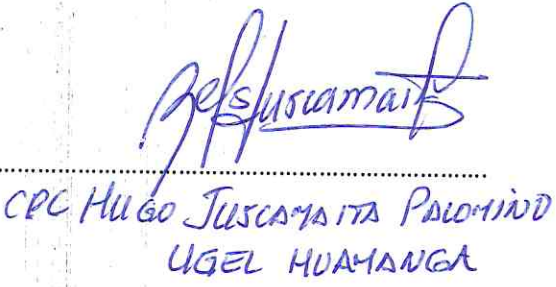 CPC HUGO JUSCAMAITA PALOMINO
UGEL HUAMANGA